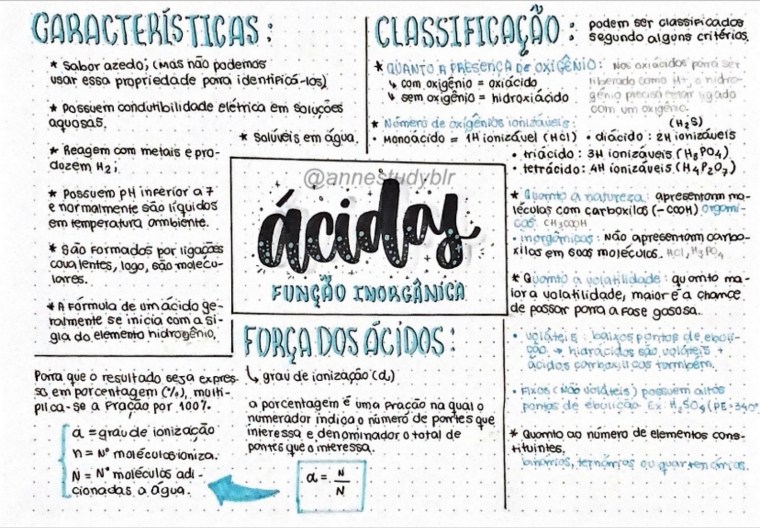 CARACTERÍSTICAS:
* Sabor azedo; (mas não podemos
usar essa propriedade para identificá-los)
* Possuem condutibilidade elétrica em soluções
aquosas.
* Solúveis em água.
* Reagem com metais e pro-
duzem H₂;
* Possuem pH inferior a 7
e normalmente são líquidos
em temperatura ambiente.
* São formados por ligações
covalentes, logo, são molecu-
lares.
* A fórmula de um ácido ge-
ralmente se inicia com a si-
gla do elemento hidrogênio.
CLASSIFICAÇÃO:
podem ser classificados
segundo alguns critérios.
* QUANTO A PRESENÇA DE OXIGÊNIO:
↳ com oxigênio = oxiácido
↳ sem oxigênio = hidroxiácido
Nos oxiácidos para ser
liberado como H+, o hidro-
gênio precisa estar ligado
com um oxigênio.
* Número de oxigênios ionizáveis:
• monoácido = 1H ionizável (HCl)
(H₂S)
• diácido: 2H ionizáveis
• triácido: 3H ionizáveis (H₃PO₄)
• tetrácido: 4H ionizáveis (H₄P₂O₇)
* Quanto a natureza: apresentam mo-
léculas com carboxilas (-COOH) orgâni-
cos. CH₃COOH
• inorgânicos: não apresentam carbo-
xilas em suas moléculas. HCl, H₃PO₄
* Quanto a volatilidade: quanto ma-
ior a volatilidade, maior é a chance
de passar para a fase gasosa.
• voláteis: baixos pontos de ebuli-
ção → hidrácidos são voláteis +
ácidos carboxílicos também.
• Fixos (não voláteis) possuem altos
pontos de ebulição. Ex: H₂SO₄ (PE=340°
* Quanto ao número de elementos cons-
tituintes.
binários, ternários ou quartenários.
@annestudyblr
ácidos
FUNÇÃO INORGÂNICA
FORÇA DOS ÁCIDOS:
↳ grau de ionização (α)
a porcentagem é uma fração na qual o
numerador indica o número de partes que
interessa e denominador o total de
partes que interessa.
α = N/N
Para que o resultado seja expres-
so em porcentagem (%), multi-
plica-se a fração por 100%.
α = grau de ionização
n = Nº moléculas ioniza.
N = Nº moléculas adi-
cionadas a água.